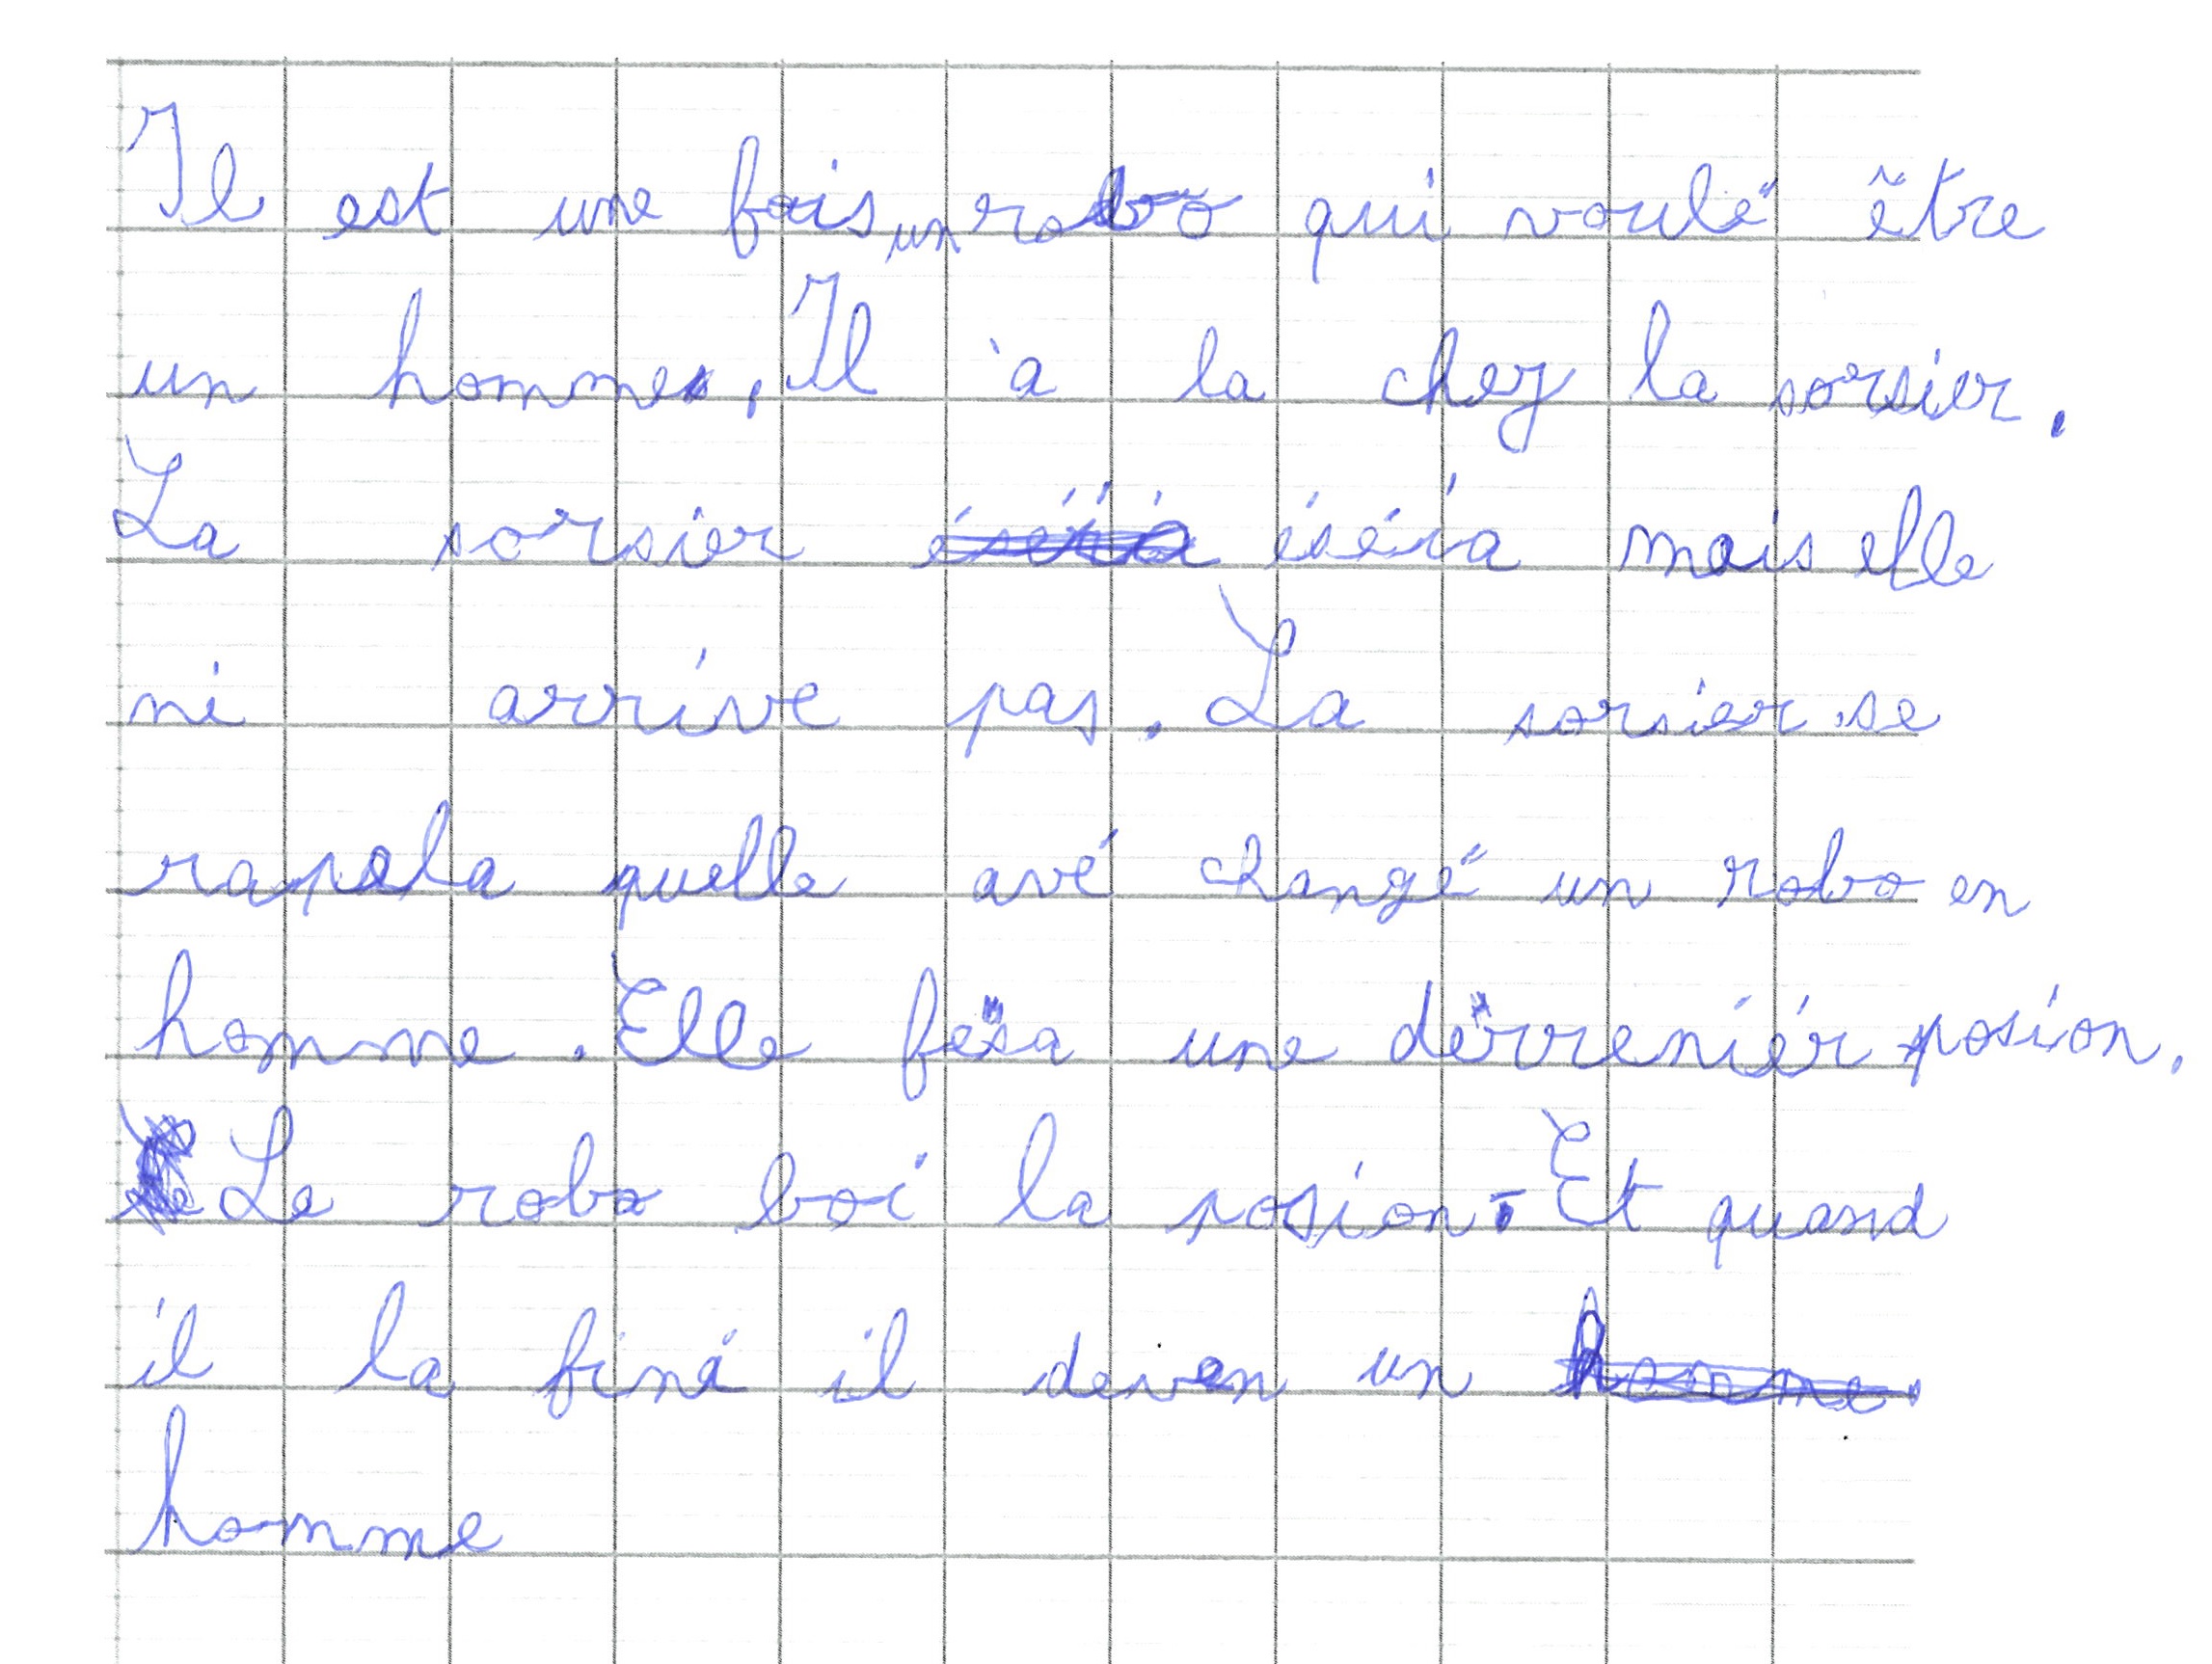 Il est une fois un robo qui voulé être
un homme. Il à la chez la sorsier.
La sorsier éséia mais elle
ni arrive pas. La sorsier se
rapela quelle avé changé un robo en
homme. Elle fesa une derreniér posion.
Le robo boi la posion. Et quand
il la fini il deven un
homme